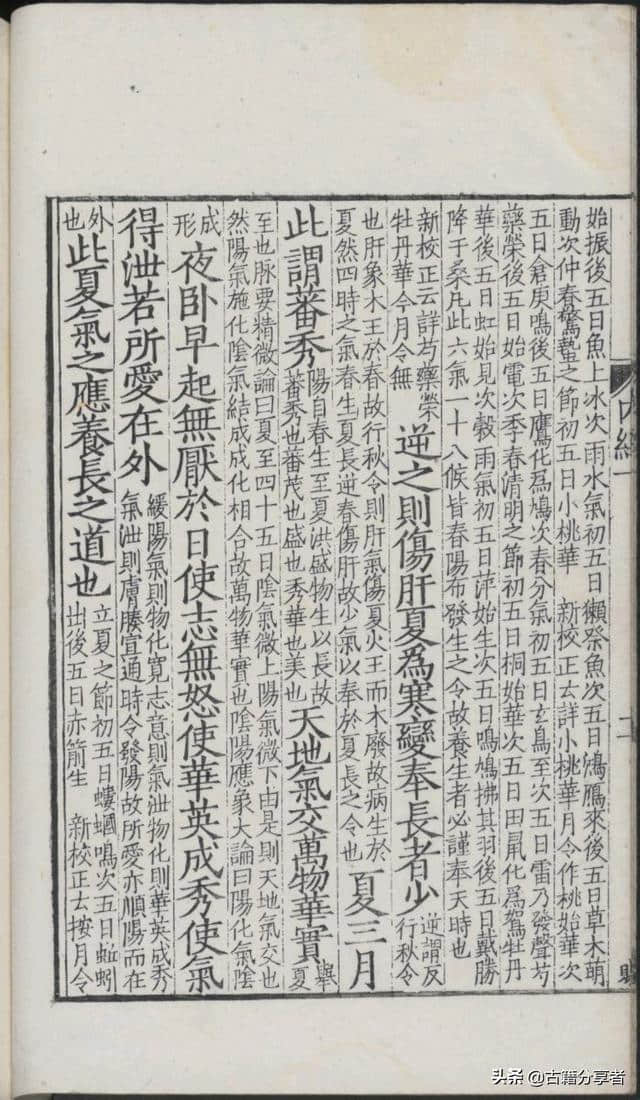 始振後五日魚上冰次雨水氣初五日獺祭魚次五日鴻鴈來後五日草木萌
動次仲春驚蟄之節初五日小桃華 新校正云詳小桃華月令作桃始華次
五日倉庚鳴後五日鷹化爲鳩次春分氣初五日玄鳥至次五日雷乃發聲芍
藥榮後五日始電次季春清明之節初五日桐始華次五日田鼠化爲鴽牡丹
華後五日虹始見次穀雨氣初五日萍始生次五日鳴鳩拂其羽後五日戴勝
降于桑凡此六氣一十八候皆春陽布發生之令故養生者必謹奉天時也
新校正云詳芍藥榮
牡丹華今月令無
逆之則傷肝夏爲寒變奉長者少
逆謂反
行秋令
也肝象木王於春故行秋令則肝氣傷夏火王而木廢故病生於
夏然四時之氣春生夏長逆春傷肝故少氣以奉於夏長之令也
夏三月
此謂蕃秀
陽自春生至夏洪盛物生以長故
蕃秀也蕃茂也盛也秀華也美也
天地氣交萬物華實
舉
夏
至也脉要精微論曰夏至四十五日陰氣微上陽氣微下由是則天地氣交也
然陽氣施化陰氣結成成化相合故萬物華實也陰陽應象大論曰陽化氣陰
成
形
夜卧早起無厭於日使志無怒使華英成秀使氣
得泄若所愛在外
緩陽氣則物化寬志意則氣泄物化則華英成秀
氣泄則膚腠宣通時令發陽故所愛亦順陽而在
外
也
此夏氣之應養長之道也
立夏之節初五日螻蟈鳴次五日蚯蚓
出後五日赤箭生 新校正云按月令
头条 @古籍分享者